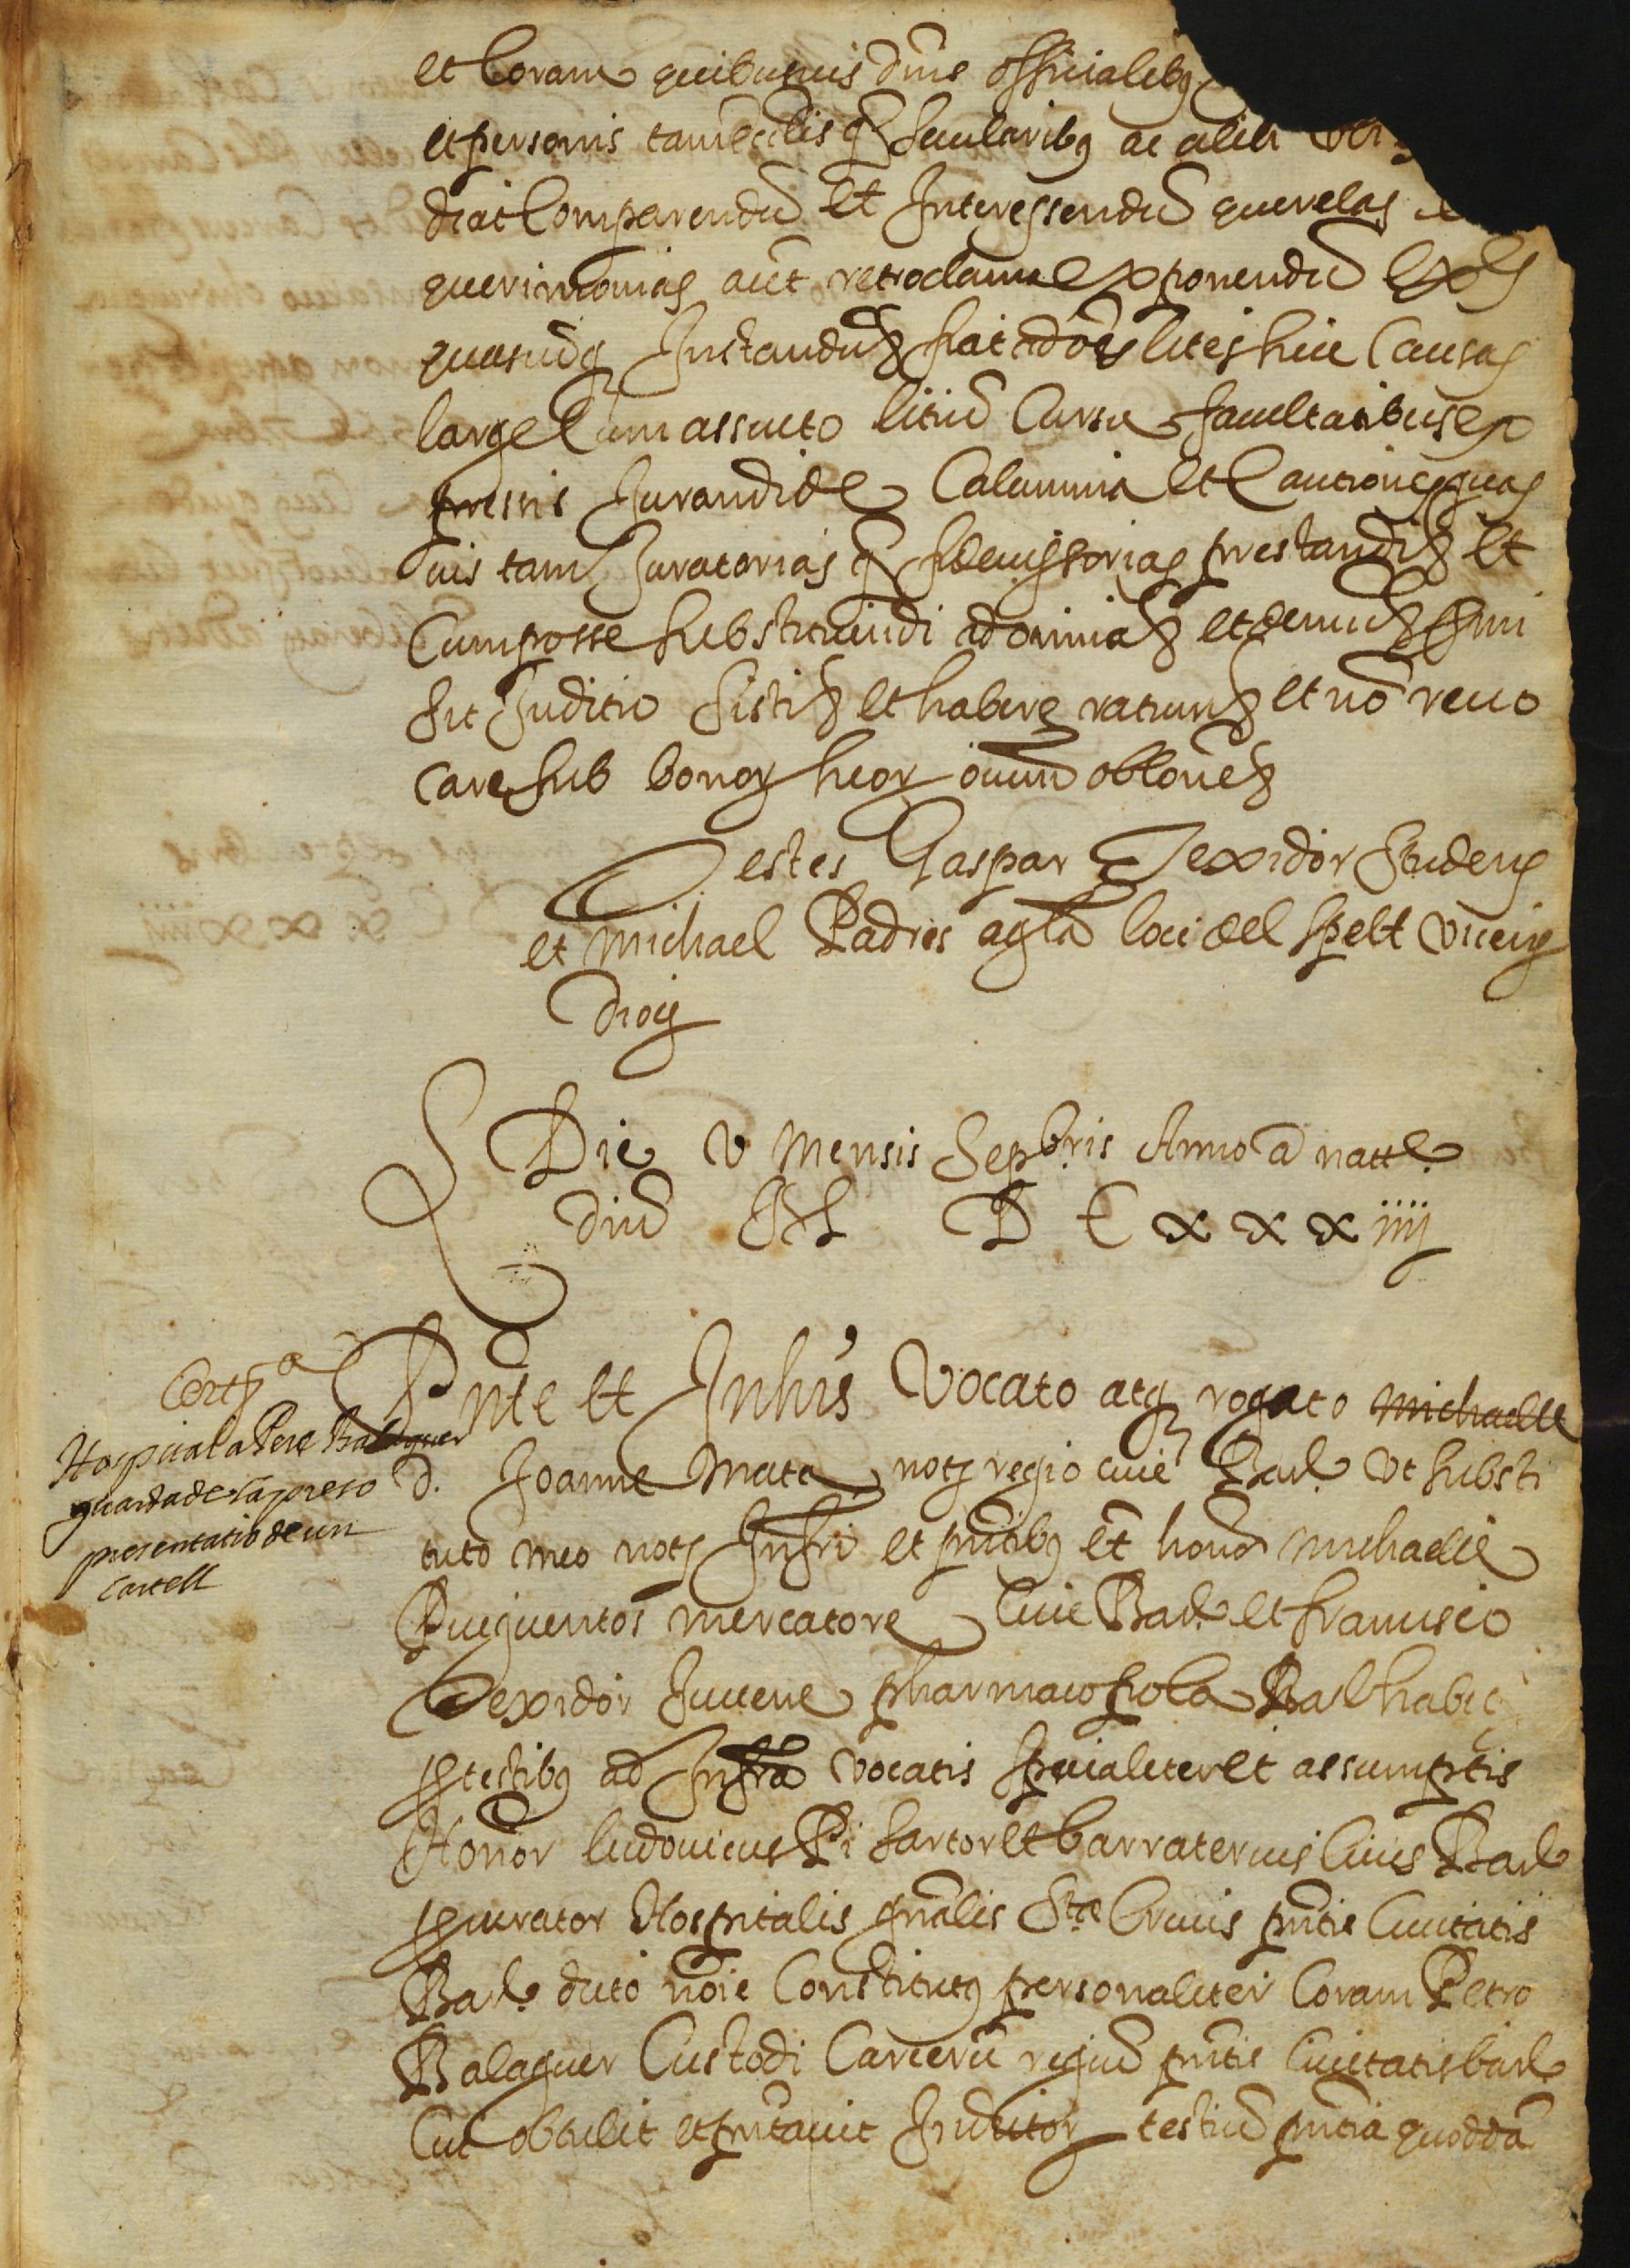 et Coram quibusuis dnis officialibg
et personis tam ecclis q secularibg ac alibi
dict Comparendu et Interessendu querelas
querimonias aut retroclam exponendu
quascuq Instandu fiat ad oes lites siue Causas
large Cum assueto litiu Cursu facultatibus ex
pressis Jurandi de Calumnia et Cautiones quas
uis tam Juratorias q fideiussorias prestandi et
Cum posse substituendi ad omnia et demu
sit Juditio sisti et habere ratum et no reuo
care sub bonor suor oium oblone
Testes Gaspar Texidor studens
et Michael Padros agla loci del Spelt
Die v Mensis Sepbris Anno a natte
dni M D C x x x iiij
Certfa
Hospital a Pere Balaguer
guarda de la preso
presentatio de un
cartell
Pnte et Infris Vocato atq rogato Michaelle
d. Joanne Mata noty regio ciue Bar. vt substi
tuto meo noty Infri et pntibg et honor Michaele
Puiguentos mercatore Ciue Bar et francisco
Texidor Juuene pharmacopola Bar habit
p testibg ad Infra vocatis specialiter et assumptis
Honor ludouicus Pi sartor et barraterius Ciuis Bar
pcurator Hospitalis gnalis Stae Crucis pntis Ciuitatis
Bar. dicto noie Constitutg personaliter Coram Petro
Balaguer Custodi Carceru regiu pntis Ciuitatis bar
Cui obtulit et pntauit testiu pntia quodda